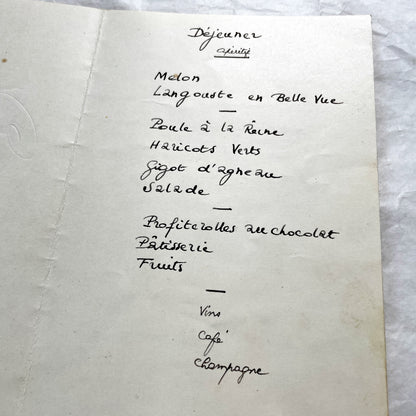 Déjeuner
apéritif
Melon
Langouste en Belle Vue
Poule à la Reine
Haricots Verts
Gigot d'agneau
Salade
Profiterolles au chocolat
Pâtisserie
Fruits
Vins
Café
Champagne